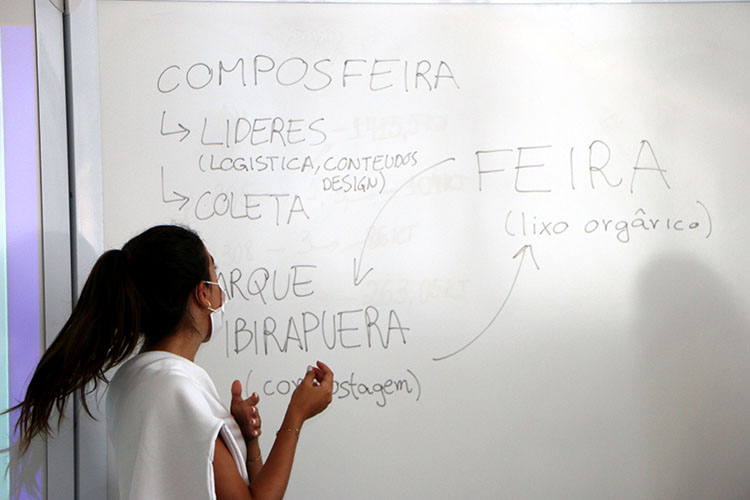 COMPOSFEIRA
↳ LIDERES
(LOGISTICA, CONTEUDOS
DESIGN)
↳ COLETA
FEIRA
(lixo orgârico)
ARQUE
IBIRAPUERA